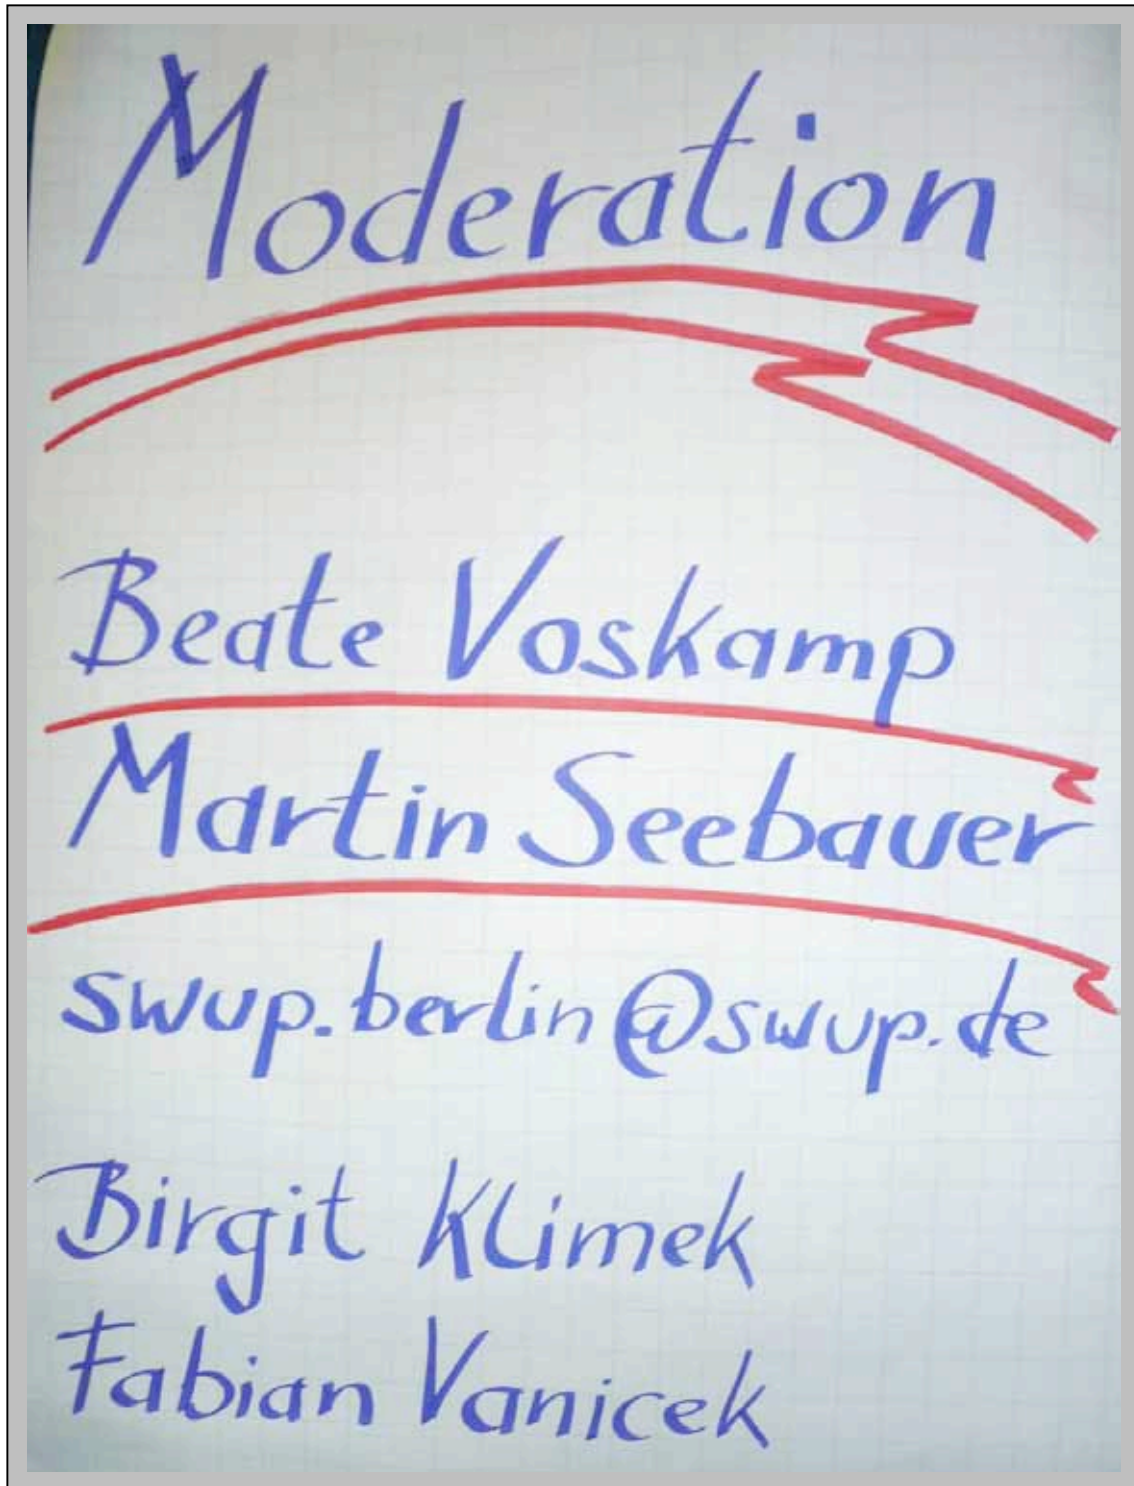 Moderation
Beate Voskamp
Martin Seebauer
swup.berlin@swup.de
Birgit Klimek
Fabian Vanicek